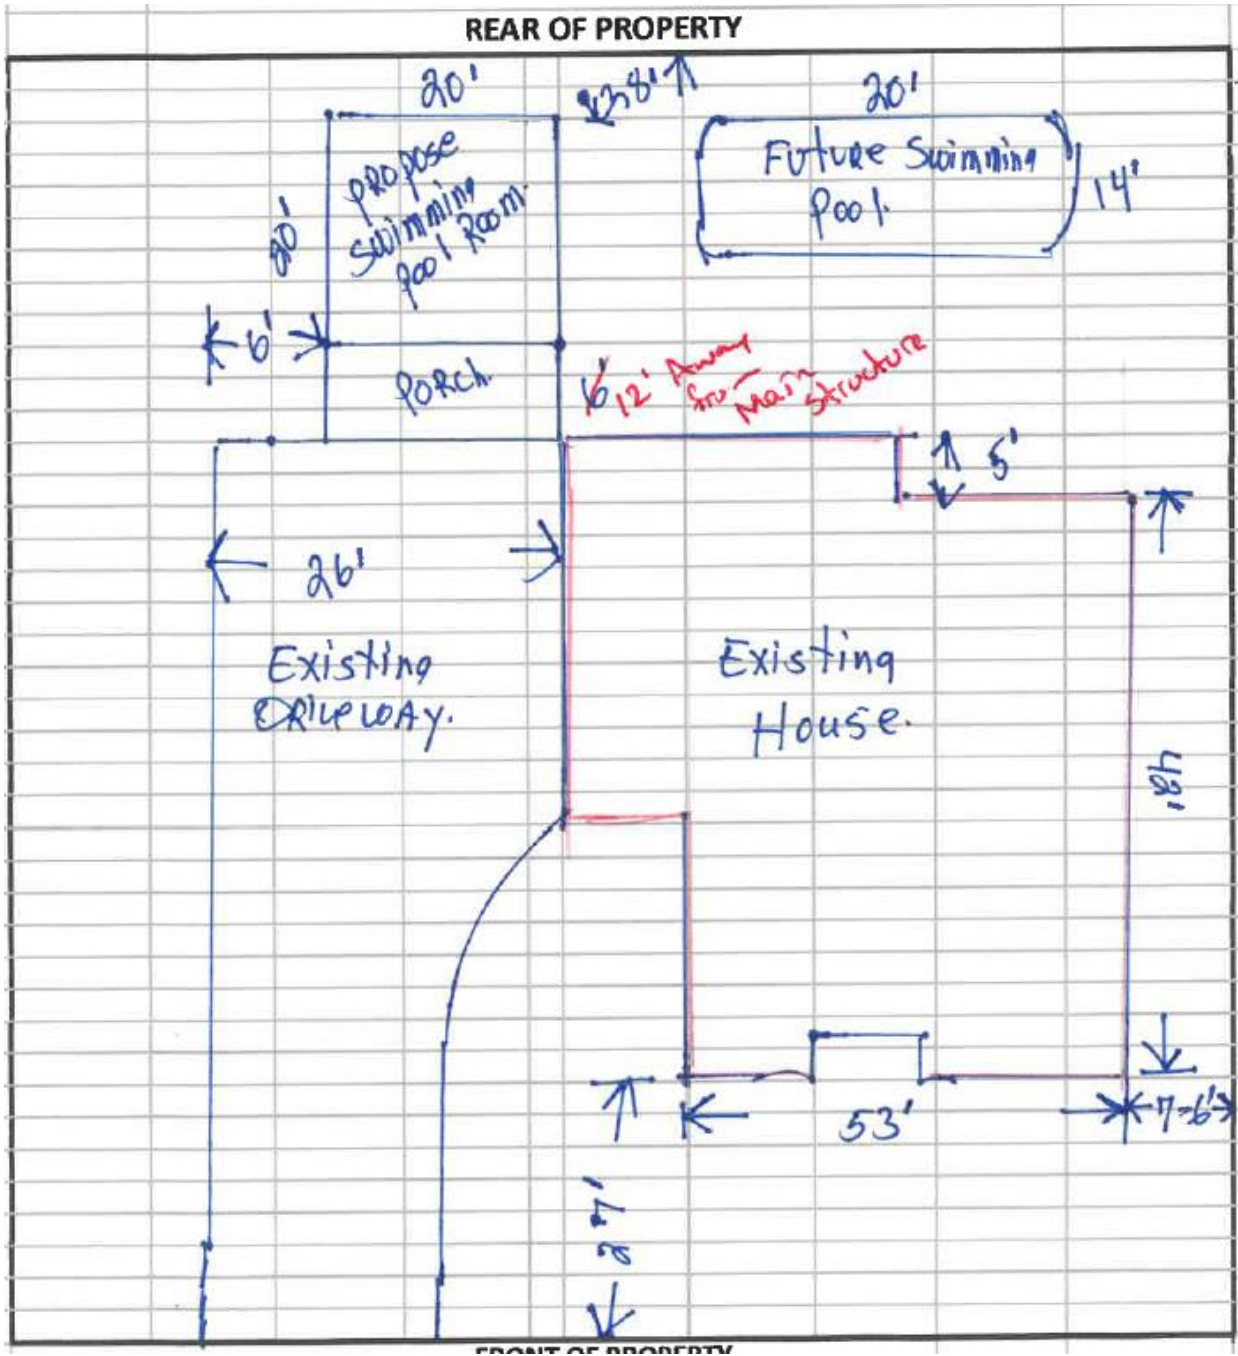 REAR OF PROPERTY
20'
8'
20'
PROPOSE
Swimming
Pool Room.
Future Swimming
Pool.
14'
20'
6'
PORCH.
12' Away
from
Main
Structure
5'
26'
Existing
DRIVEWAY.
Existing
House.
48'
53'
7-6'
27'
FRONT OF PROPERTY